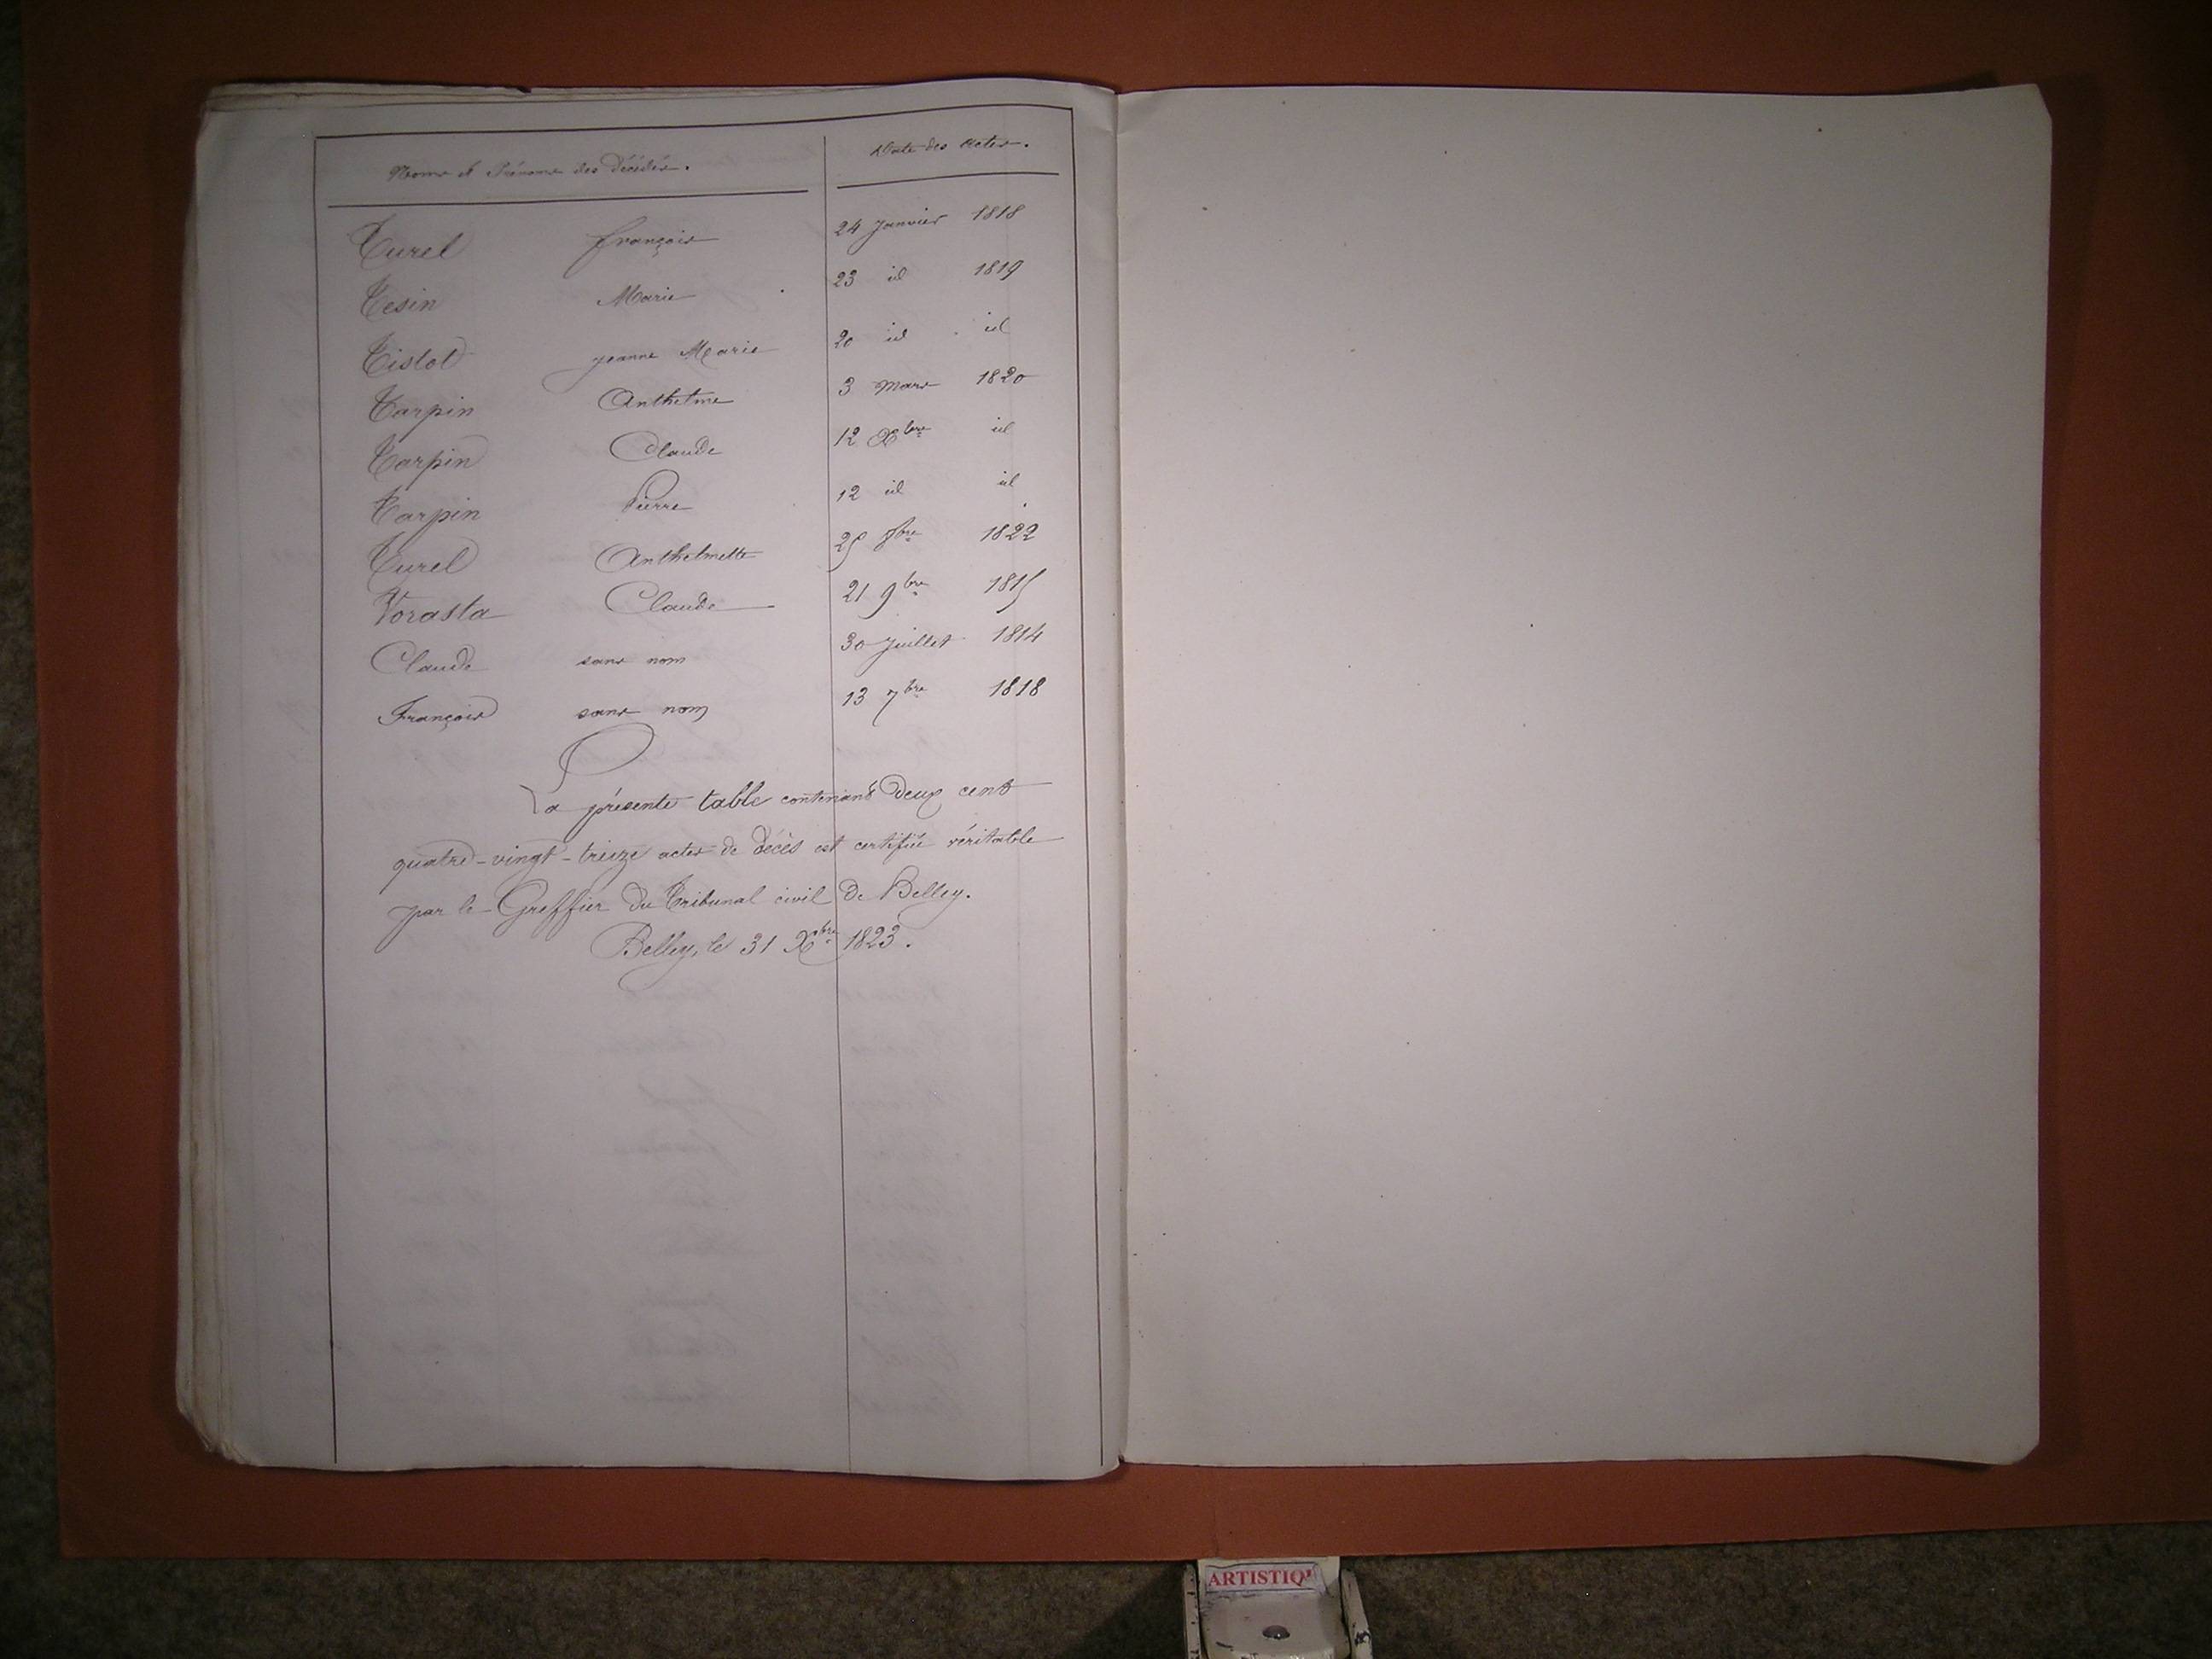 Noms et Prénoms des Décédés. Date des Actes.
Turel François 24 Janvier 1818
Tesin Marie 23 id 1819
Tistot Jeanne Marie 20 id id
Tarpin Anthelme 3 Mars 1820
Tarpin Claude 12 Xbre id
Tarpin Pierre 12 id id
Turel Anthelmette 25 8bre 1822
Vorasta Claude 21 9bre 1815
Claude sans nom 30 Juillet 1814
François sans nom 13 7bre 1818
La présente table contenant Deux cent
quatre-vingt-treize actes de décès est certifiée véritable
par le Greffier du Tribunal civil de Belley.
Belley, le 31 Xbre 1823.
ARTISTIQ